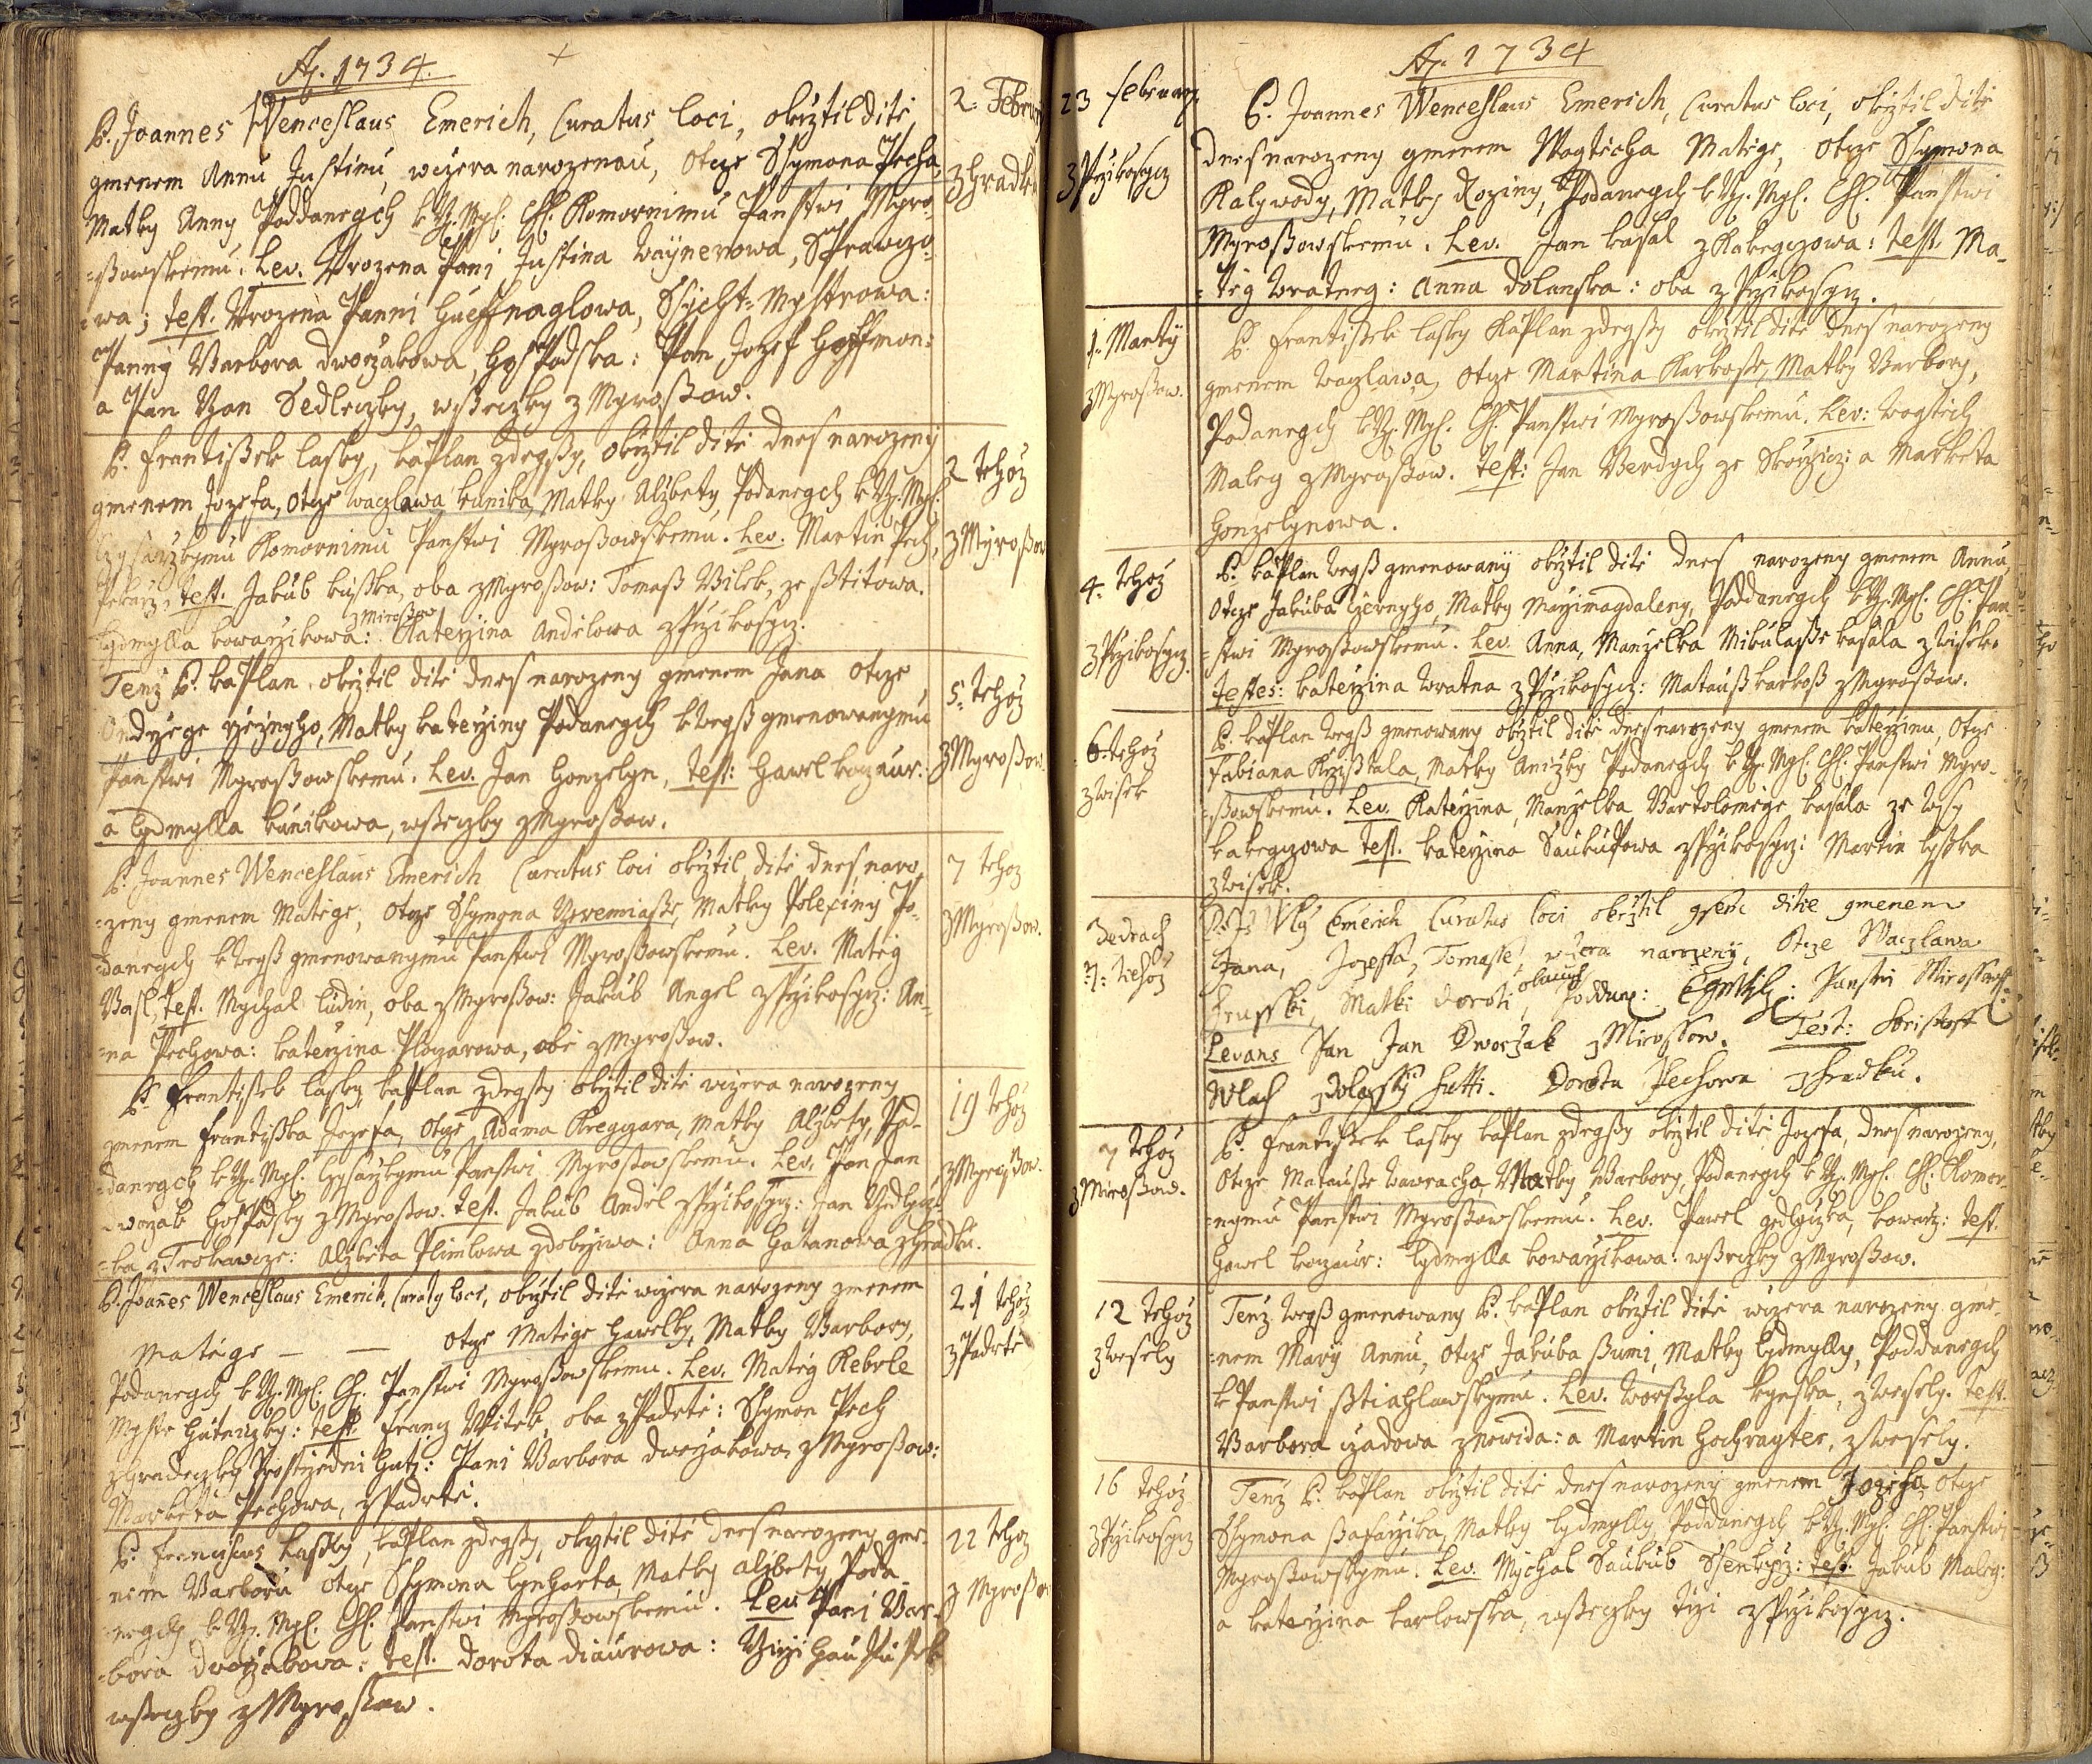 Aỹ. 1734.
P. Joannes Wenceslaus Emerich, Curatus loci, okrztil ditě,
gmenem Annu Justinu, wczera narozenau, otcze Ssymona Pecha,
Matky Anny Poddanegch k Panstwi Myro-
=ßowskemu. Lev. Urozena Pani Justina Waÿnerowa, Sprawczo-
=wa; test. Urozena Panni Hueffnaglowa, Ssicht-Mystrowa:
Panny Barbora dworzakowa, hospodska: Pan Jozef Hoffmon:
a Pan Jan Sedleczky, wßeczky z Myroßow.
2. Februarij
z Hradku
P. Frantißek lasky, kaplan zdegßy, okrztil ditě dnes narozeny
gmenem Jozefa, otcze Waczlawa kunika, Matky Alzbety, Podanegch k
Komornimu Panstwi Myroßowskemu. Lev. Martin Pech,
Pekarz, test. Jakub kußka, oba z Myroßow: Tomaß Bilek, ze ßtitowa.
z Mirossow
Lydmylla kowarzikowa: Katerzina Andělowa z Przikosycz.
2 tehoz
z Myroßow
Tenz P. kaplan okrztil ditě dnes narozeny gmenem Jana otcze
Ondrzege, Matky katerziny Podanegch k wegß gmenowanymu
Panstwi Myroßowskemu. Lev. Jan Honzelyn, test: Hawel koczaur:
a Lydmylla kunikowa, wßeczky z Myroßow.
5. tehoz
z Myroßow.
P. Joannes Wenceslaus Emerich Curatus loci okrztil ditě dnes naro-
=zeny gmenem Matěge, otcze Ssymona Yeremiaße, Matky Polexiny Po-
=danegch k wegß gmenowanymu Panstwi Myroßowskemu. Lev. Matěg
Basl, test. Mychal ludin, oba z Myroßow: Jakub Angel z Przikosycz: An-
=na Pechowa: katerzina Plozarowa, obě z Myroßow.
7 tehoz
z Myroßow.
P. Frantißek lasky, kaplan zdegßy okrztil ditě wczera narozeny
gmenem Frantyßka Jozefa, otcze Adama Kregczara, Matky Alzbety, Pod-
=danegch k Panstwi Myroßowskemu. Lev. Pan Jan
dworzak hospodsky z Myroßow. test. Jakub Anděl z Przikosycz: Jan
=ka z Trokawcze: Alzběta Plimlowa z dobrziwa: Anna Hatanowa z Hradku.
19 tehoz
z Myroßow.
P. Joannes Wenceslaus Emerich, Curatg loci, okrztil ditě wczera narozeny gmenem
Matěge — — otcze Matěge Hawelky, Matky Barbory,
Podanegch k Panstwi Myroßowskemu. Lev. Matěg Keberle
Mystr Hutniczky: test. Francz Witek, oba z Padrtě: Ssymon Pech
z Hradeczky Prostrzedni Hutj: Pani Barbora dworzakowa z Myroßow:
Markéta Pechowa, z Padrtě.
21 tehoz
z Padrtě
P. Franciscus Laßky, kaplan zdegßy, okrztil ditě dnes narozeny gme-
nem Barboru otcze Ssymona Lynharta, Matky Alzbety, Poda-
=negch k Panstwi Myroßowskemu. Lev. Pani Bar-
=bora dworzakowa: test. dorota diaurowa:
wßeczky z Myroßow.
22 tehoz
z Myroßow
Aỹ. 1734
23 februarij
z Przikosycz
P. Joannes Wenceslaus Emerich, Curatus loci, okrztil ditě
dnes narozeny gmenem Wogtěcha Matěge, otcze Ssymona
Kalywody, Matky Roziny, Podanegch k Panstwi
Myroßowskemu. Lev. Jan kasal z Kakegczowa: test. Ma-
=těg Wrateng: Anna dolanska: oba z Przikosycz.
1. Martÿ
z Myroßow.
P. Frantißek lasky Kaplan zdegßy okrztil ditě dnes narozeny
gmenem Waczlawa, otcze Martina Karkoße, Matky Barbory,
Podanegch k Panstwi Myroßowskemu. Lev: Wogtěch
Maleg z Myroßow. test: Jan Berdych ze Skorzicz: a Markěta
Honzelynowa.
4. tehoz
z Przikosycz.
P. kaplan wegß gmenowanÿ okrztil ditě dnes narozeny gmenem Annu,
otcze Jakuba czernyho, Matky Marzimagdaleny, Poddanegch k Pan-
=stwi Myroßowskemu. Lev. Anna, Manzelka Mikulaße kasala z Wisek.
Testes: katerzina Wratna z Przikosycz: Matauß karkoß z Myroßow.
6. tehoz
z Wisek
P. kaplan wegß gmenowany okrztil ditě dnes narozeny gmenem katerzinu, otcze
Fabiana Krzißtala, Matky Aniczky Podanegch k Panstwi Myro-
=ßowskemu. Lev. Katerzina, Manzelka Bartolomege kasala ze wsy
kakegczowa test. katerzina Saukupowa z Przikosycz: Martin lyßka
z Wisek.
Dedrach
7. tehoz
Emerich Curatus loci okrztil gsem ditie gmenem
Jana, Jozeffa, Tomasse, wczera narozeny, otcze Waczlawa
Hrusski, Matki doroti, obauch Poddane: Panstwi Mirossowsk:
Levans Pan Jan Dworzak z Mirossow. Test: Christoff
Wlach z dolegssy hutti. Dorota Pechowa z Hradku.
7 tehoz
z Miroßow.
P. Frantißek lasky kaplan zdegßy okrztil ditě Jozefa, dnes narozeny,
otcze Matauße Wawracha, Matky Barbory, Podanegch k Komor-
=nymu Panstwi Myroßowskemu. Lev. Pawel gedlyczka, kowarz: test.
Hawel koczaur: Lydmylla kowarzikowa: wßeczky z Myroßow.
12 tehoz
z Wesely
Tenz wegß gmenowany P. kaplan okrztil ditě wczera narozeny gme-
=nem Marÿ Annu, otcze Jakuba ßumi, Matky Lydmylly, Poddanegch
k Panstwi ßtiahlawskymu. Lev. Worßyla kyeska, z Wesely. test.
Barbora czadowa z newida: a Martin Hochrayter, z Wesely.
16 tehoz
z Przikosycz
Tenz P. kaplan okrztil ditě dnes narozeny gmenem Jozefa, otcze
Ssymona ßafarzika, Matky Lydmylly, Poddanegch k Panstwi
Myroßowskymu. Lev. Mychal Saukub Ssenkyrz: test. Jakub Maleg:
a katerzina karlowska, wßeczky trzi z Przikosycz.